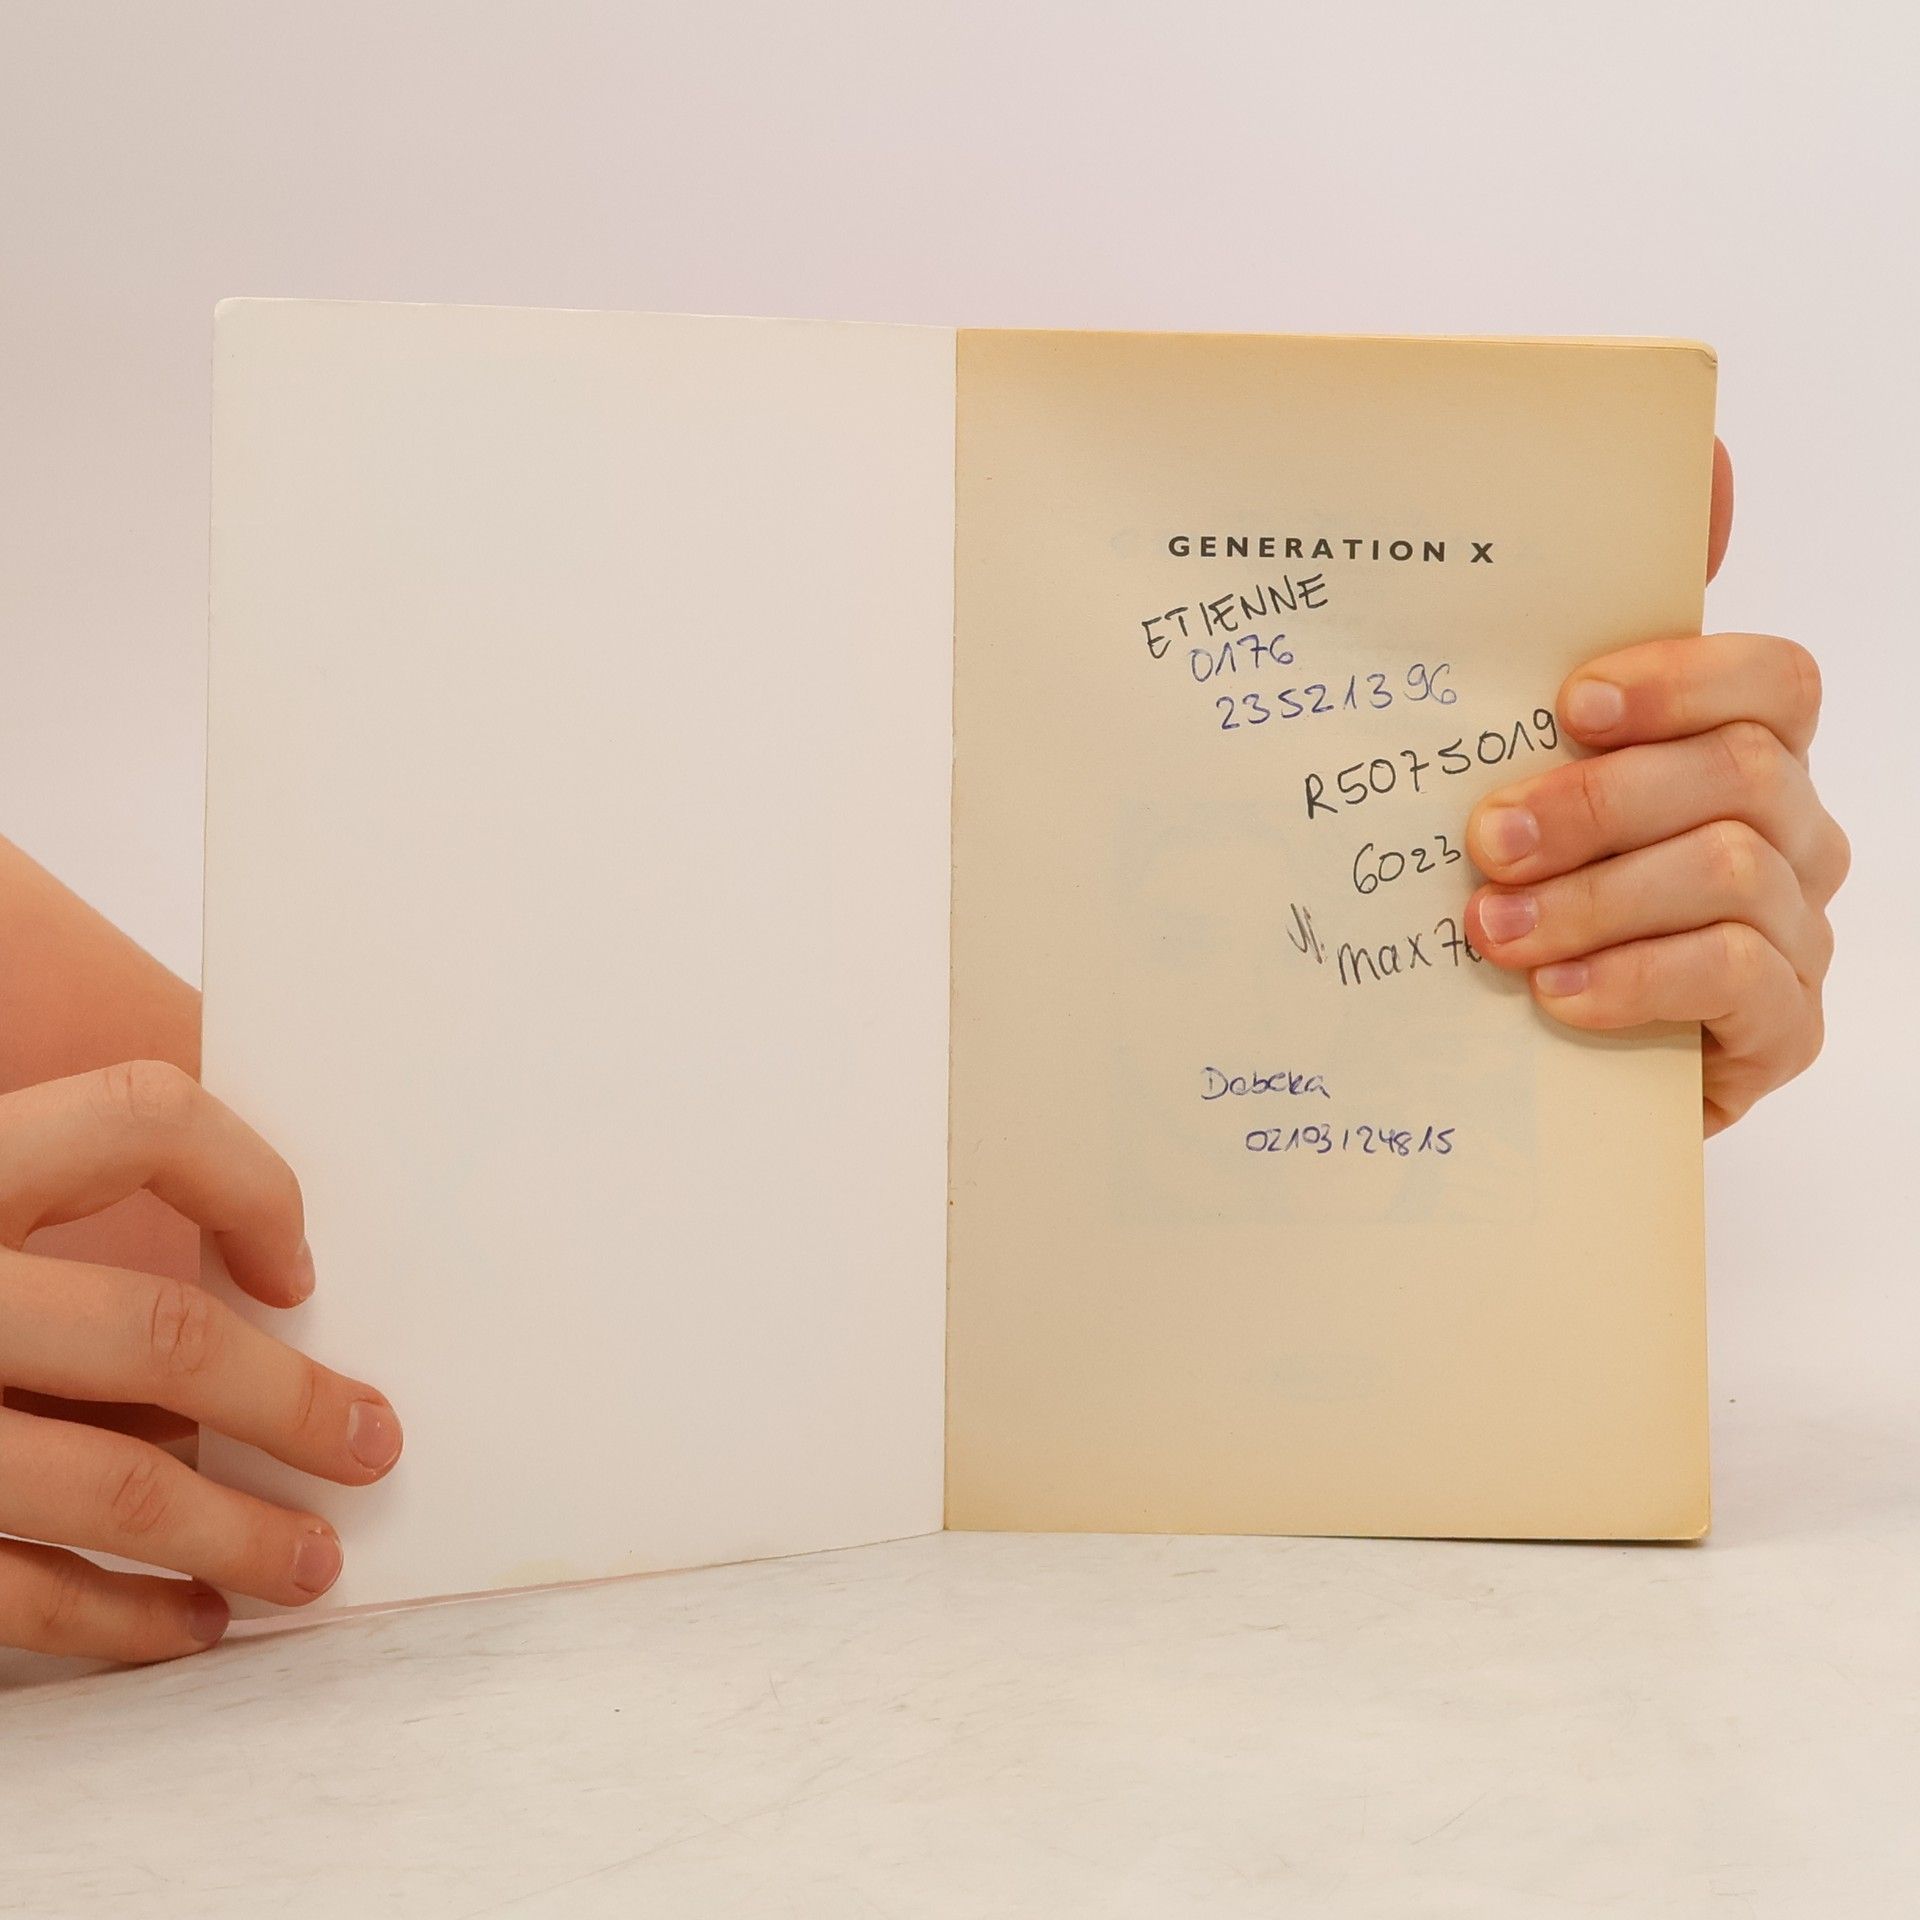 GENERATION X
ETIENNE
0176
23521396
R5075019
6023
max 76
Debeka
02103124815